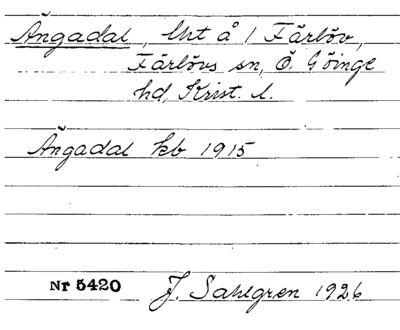 Ängadal, lht å 1 Färlöv,
Färlövs sn, Ö. Göinge
hd, Krist. l.
Ängadal kb 1915
Nr 5420 J. Sahlgren 1926